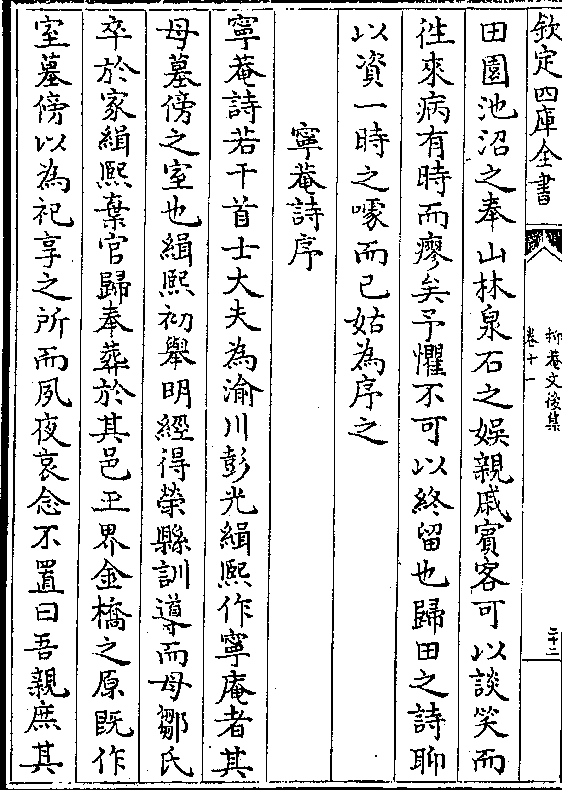 欽定四庫全書
抑菴文後集
卷十一
二十二
田園池沼之奉山林泉石之娛親戚賓客可以談笑而
徃來病有時而瘳矣予懼不可以終留也歸田之詩聊
以資一時之噱而已姑為序之
寧菴詩序
寧菴詩若干首士大夫為渝川彭光緝熙作寧庵者其
母墓傍之室也緝熙初舉明經得榮縣訓導而母鄒氏
卒於家緝熙棄官歸奉葬於其邑王界金橋之原既作
室墓傍以為祀享之所而夙夜哀念不置曰吾親庶其